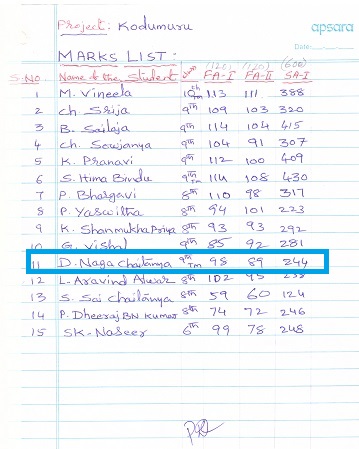 Project: Kodumuru
apsara
Date:
MARKS LIST:
(120) (120) (600)
S.NO. Name of the Student FA-I FA-II SA-I
1 M. Vineela 10th TM 113 111 388
2 Ch. Srija 9th 109 103 320
3 B. Sailaja 9th 114 104 415
4 Ch. Sowjanya 9th 104 91 307
5 K. Pranavi 9th 112 100 409
6 S. Hima Bindu 9th TM 114 108 430
7 P. Bhargavi 8th 110 98 317
8 P. Yaswitha 8th 94 101 223
9 K. Shanmukha Priya 8th 93 93 292
10 G. Vishal 9th 85 92 281
11 D. Naga Chaitanya 9th TM 98 89 244
12 L. Aravind 8th 102 95 238
13 S. Sai Chaitanya 8th 59 60 124
14 P. Dheeraj BN Kumar 8th 74 72 246
15 SK. Naseer 6th 99 78 248